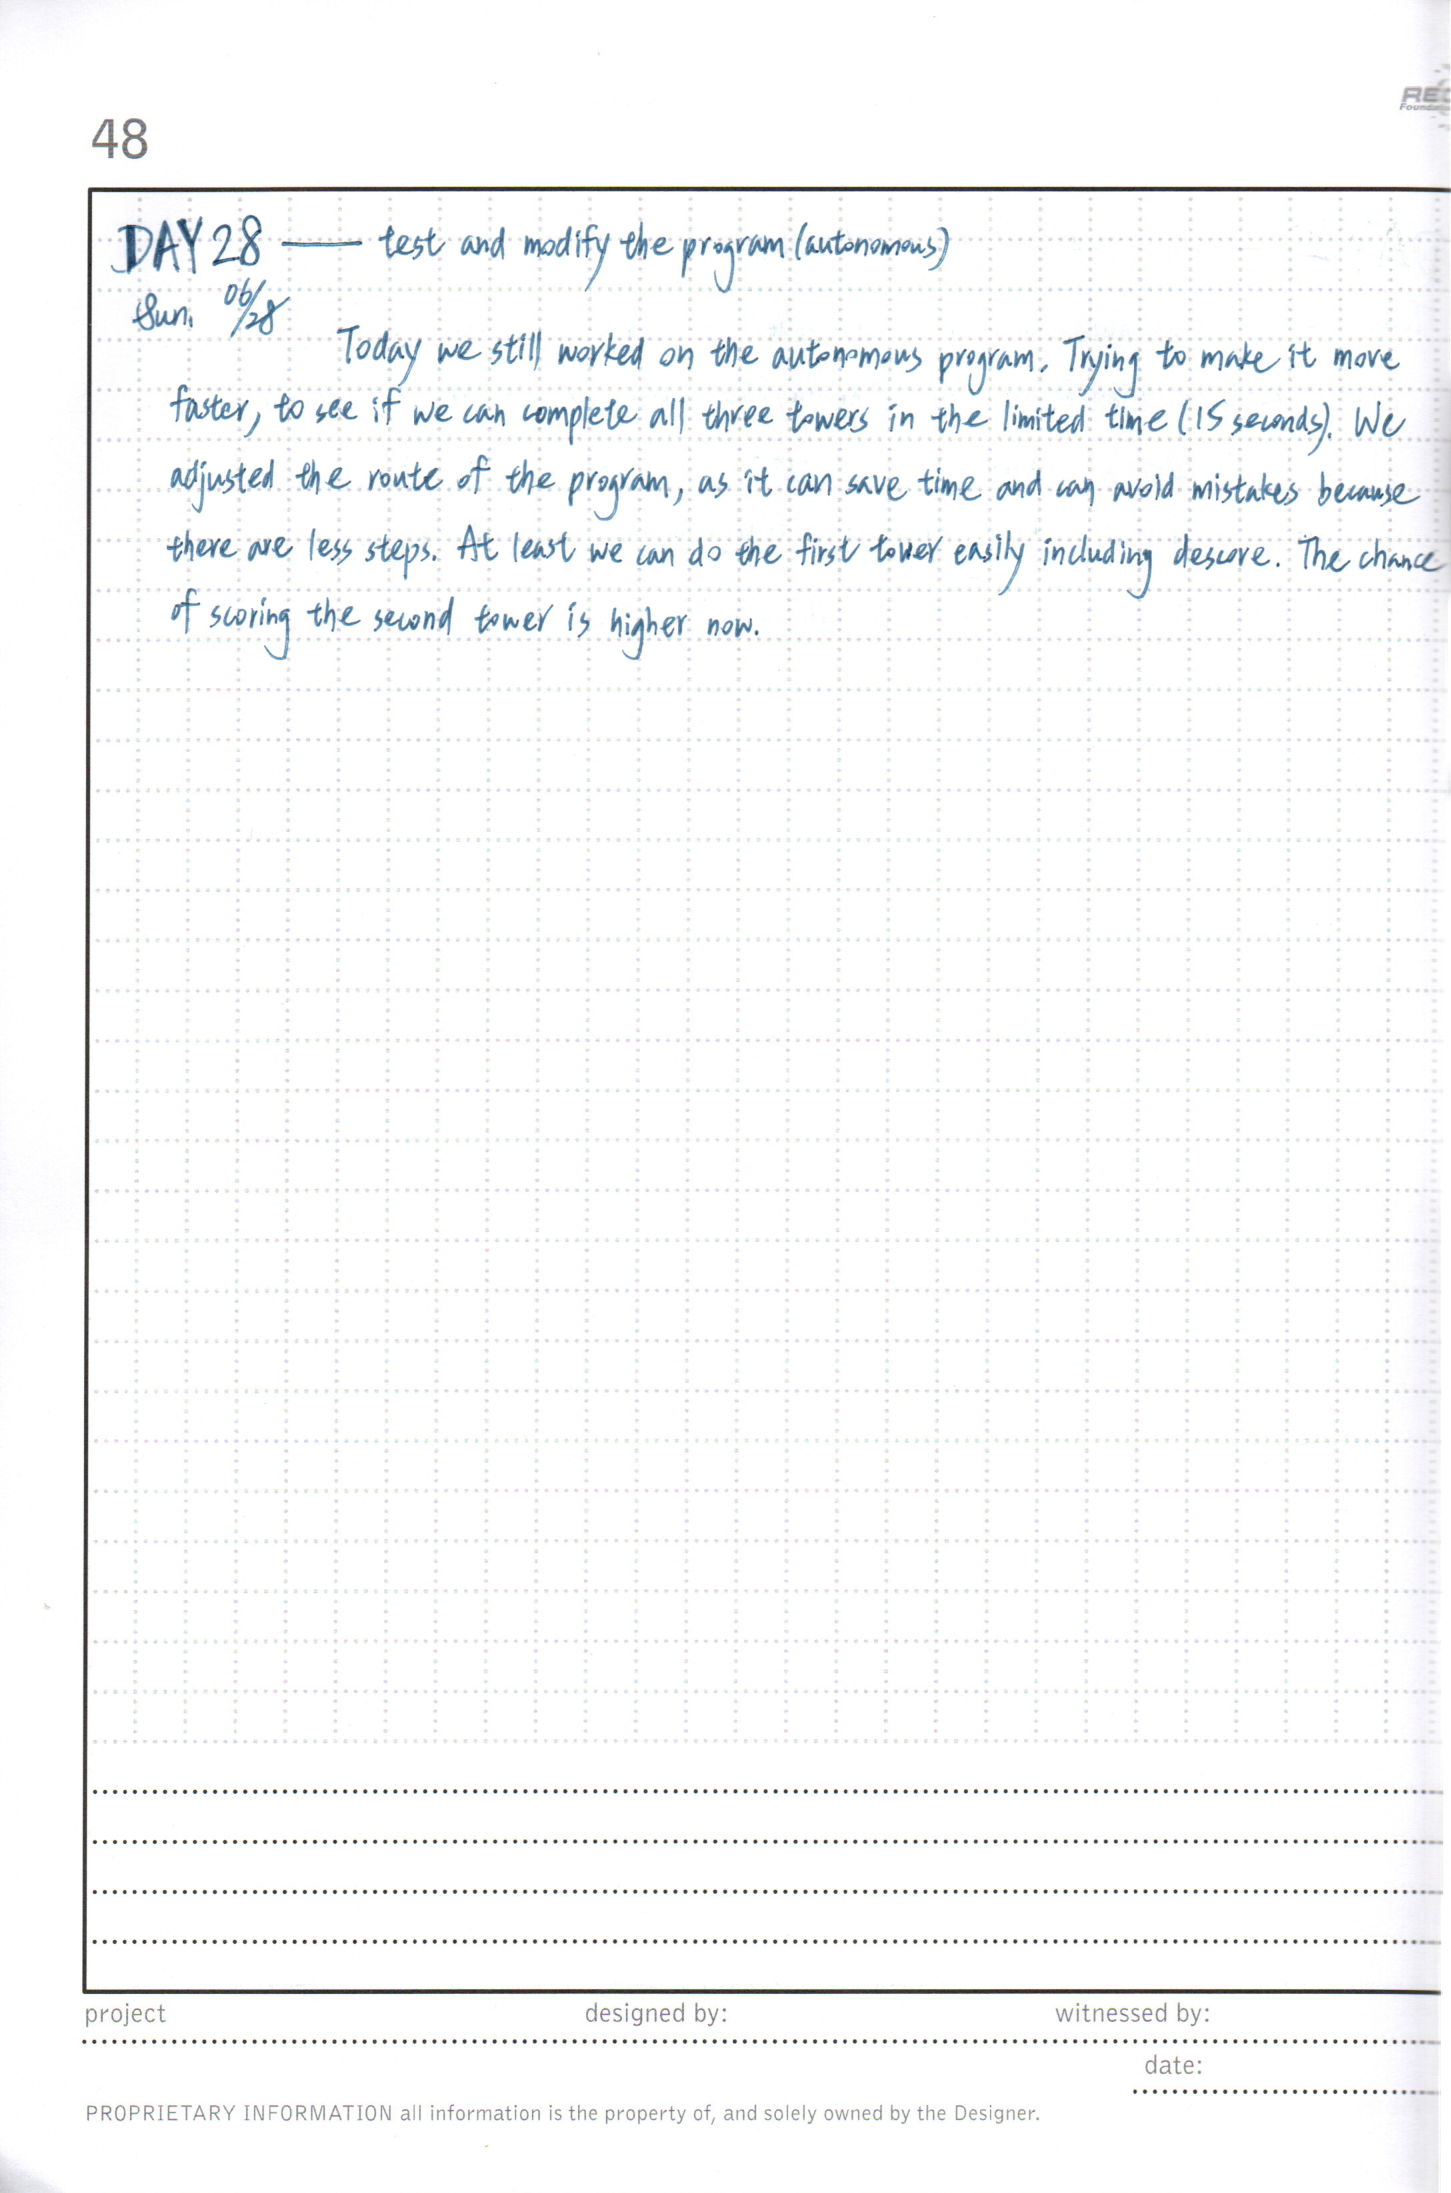 REC
Foundation
48
DAY 28 —— test and modify the program (autonomous)
Sun. 06/28
Today we still worked on the autonomous program. Trying to make it move
faster, to see if we can complete all three towers in the limited time (15 seconds). We
adjusted the route of the program, as it can save time and can avoid mistakes because
there are less steps. At least we can do the first tower easily including descore. The chance
of scoring the second tower is higher now.
project
designed by:
witnessed by:
date:
PROPRIETARY INFORMATION all information is the property of, and solely owned by the Designer.